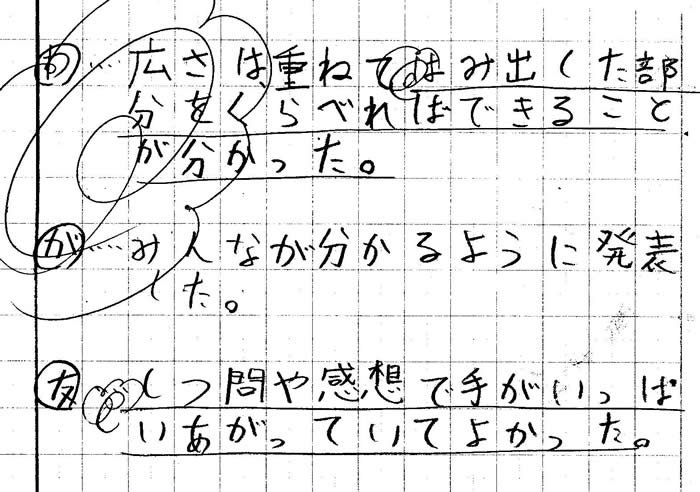 わ…広さは、重ねてはみ出した部
分をくらべればできること
が分かった。
が…みんなが分かるように発表
した。
友 しつ問や感想で手がいっぱ
いあがっていてよかった。